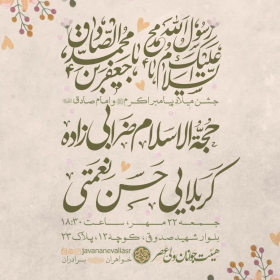 السلام علیک یا رسول الله
یا جعفر بن محمد الصادق
جشن میلاد پیامبر اکرم ﷺ و امام صادق
حجة الاسلام ضرابی زاده
کربلایی حسن نعمتی
جمعه ۲۲ مهر، ساعت ۱۸:۳۰
بلوار شهید صدوقی، کوچه ۱۲، پلاک ۲۳
هیئت جوانان ولی عصر
javananevaliasr
خواهران
برادران